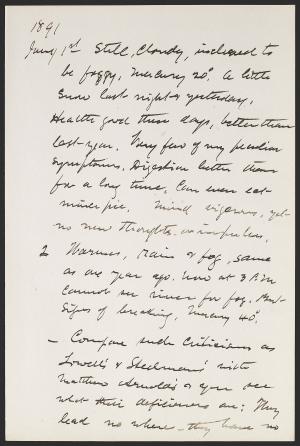 1891
Jany 1st Still, Cloudy, inclined to
be foggy, mercury 20°. A little
Snow last night & yesterday.
Health good these days, better than
last year. Very few of my peculiar
symptoms. Digestion better than
for a long time, Can even eat
mince pie. Mind vigorous, yet
no new thoughts or impulses.
2 Warmer, rain & fog, same
as one year ago. Now at 3 P.M.
cannot see river for fog.
Signs of breaking, Mercury 40°.
— Compare such criticisms as
Lowell's & Stedman's with
Matthew Arnolds & you see
what their deficiencies are: They
lead no where — they have no